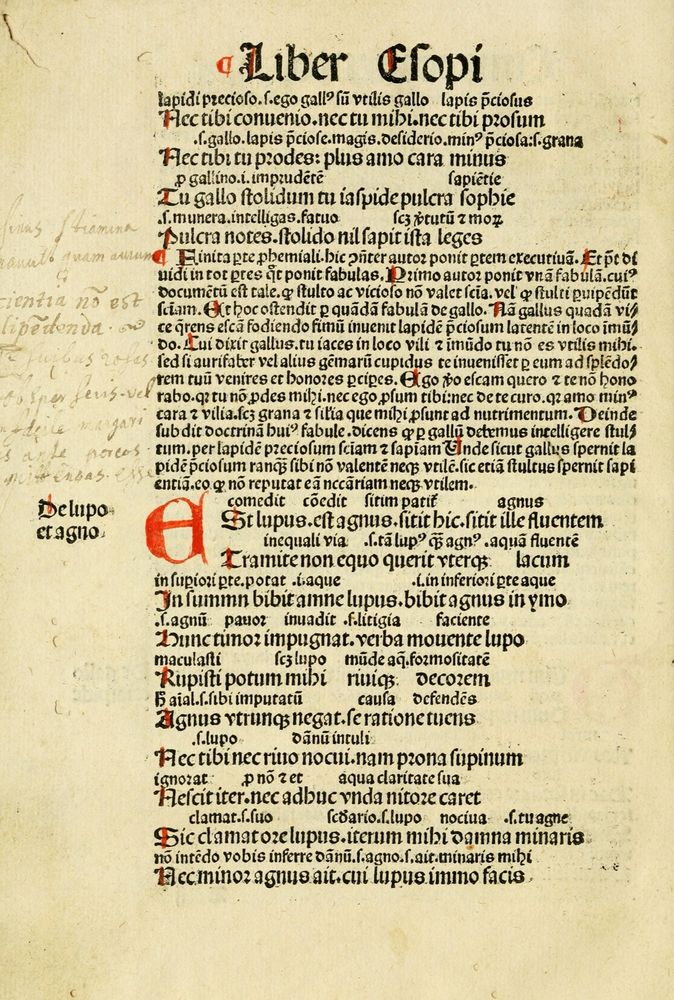 ¶ Liber Esopi
lapidi precioso.s.ego gallꝰ sū vtilis gallo lapis p̄ciosus
Nec tibi conuenio.nec tu mihi.nec tibi prosum
.s.gallo.lapis p̄ciose.magis.desiderio.minꝰ p̄ciosa:s.grana
Nec tibi tu prodes: plus amo cara minus
ꝓ gallino.i.imprudētē sapiētie
Tu gallo stolidum tu iaspide pulcra sophie
.s.munera.intelligas.fatuo scꝫ ꝟtutū ⁊ moꝝ
Pulcra notes.stolido nil sapit ista leges
¶ Finita ꝑte ꝓhemiali.hic ↄn̄ter autor ponit ꝑtem executiuā. Et pn̄t di
uidi in tot ꝑtes qͦt ponit fabulas. Primo autor ponit vnā fabulā.cuiꝰ
documētū est tale.ꝙ stulto ac vicioso nō valet scīa.vel ꝙ stulti ꝑuipēdūt
scīam. Et hoc ostendit ꝑ quādā fabulā de gallo. Nā gallus quadā vi/
ce q̄rens escā fodiendo fimū inuenit lapidē p̄ciosum latentē in loco imū/
do. Cui dixit gallus.tu iaces in loco vili ⁊ imūdo tu nō es vtilis mihi.
sed si aurifaber vel alius gēmarū cupidus te inuenisset ꝑ eum ad splēdo/
rem tuū venires et honores ꝑciꝑes. Ego ꝟo escam quero ⁊ te nō hono
rabo.qꝛ tu nō ꝓdes mihi.nec ego ꝓsum tibi:nec de te curo.qꝛ amo minꝰ
cara ⁊ vilia.scꝫ grana ⁊ silia que mihi ꝓsunt ad nutrimentum. Deinde
subdit doctrinā huiꝰ fabule.dicens ꝙ ꝑ gallū debemus intelligere stul/
tum.per lapidē preciosum scīam ⁊ sapīam Unde sicut gallus spernit la
pidē p̄ciosum tanqꝫ sibi nō valentē neqꝫ vtilē.sic etiā stultus spernit sapi
entiā.eo ꝙ nō reputat eā nccāriam neqꝫ vtilem.
De lupo
et agno
comedit cōedit sitim patit̄ agnus
ESt lupus.est agnus.sitit hic.sitit ille fluentem
inequali via .s.tā lupꝰ qꝫ̄ agnꝰ .aquā fluentē
Tramite non equo querit vterqꝫ lacum
in suꝑiori ꝑte.potat .i.aque .i.in inferiori ꝑte aque
In summn bibit amne lupus.bibit agnus in ymo
.s.agnū pauor inuadit .s.litigia faciente
Hunc timor impugnat.verba mouente lupo
maculasti scꝫ lupo mūde aq̄.formositatē
Rupisti potum mihi riuiqꝫ decorem
h̄ aīal.s.sibi imputatū causa defendēs
Agnus vtrunqꝫ negat.se ratione tuens
.s.lupo dānū intuli
Nec tibi nec riuo nocui.nam prona supinum
ignorat ꝓ nō ⁊ et aqua claritate sua
Nescit iter.nec adhuc vnda nitore caret
clamat.s.suo scd̄ario.s.lupo nociua .s.tu agne
Sic clamat ore lupus.iterum mihi damna minaris
nō intēdo vobis inferre dānū.s.agno.s.ait.minaris mihi
Nec minor agnus ait.cui lupus.immo facis